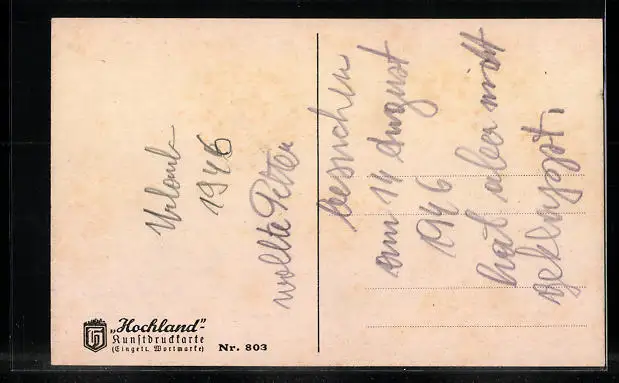 Urlaub
1946
wollte Peter
besuchen
am 14 August
1946
hat aber nitt
geklappt.
„Hochland"-
Kunstdruckkarte
(Eingetr. Wortmarke)
Nr. 803